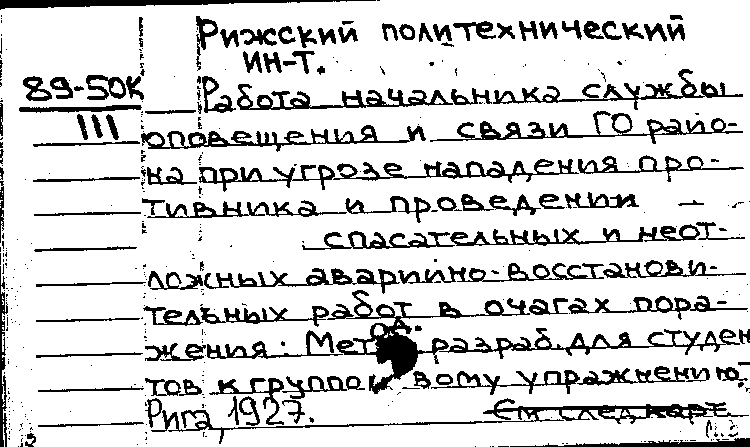 Рижский политехнический
ин-т.
89-50К
III
Работа начальника службы
оповещения и связи ГО райо-
на при угрозе нападения про-
тивника и проведении
спасательных и неот-
ложных аварийно-восстанови-
тельных работ в очагах пора-
жения: Метод. разраб. для студен
тов к групповому упражнению,
Рига, 1927.
См след карт